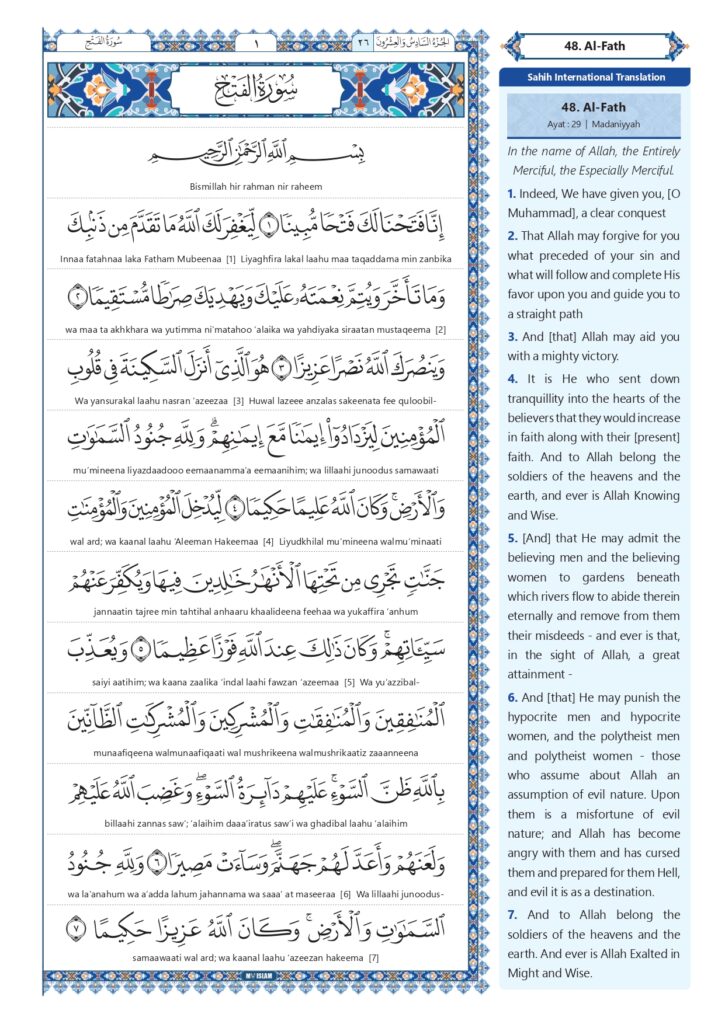 سُورَةُ الفَتْحِ
١
٢٦
الجُزْءُ السَّادِسُ وَالعِشْرُونَ
سُورَةُ الْفَتْحِ
بِسْمِ اللَّهِ الرَّحْمَٰنِ الرَّحِيمِ
Bismillah hir rahman nir raheem
إِنَّا فَتَحْنَا لَكَ فَتْحًا مُّبِينًا ﴿١﴾ لِّيَغْفِرَ لَكَ اللَّهُ مَا تَقَدَّمَ مِن ذَنۢبِكَ
Innaa fatahnaa laka Fatham Mubeenaa [1] Liyaghfira lakal laahu maa taqaddama min zanbika
وَمَا تَأَخَّرَ وَيُتِمَّ نِعْمَتَهُۥ عَلَيْكَ وَيَهْدِيَكَ صِرَٰطًا مُّسْتَقِيمًا ﴿٢﴾
wa maa ta akhkhara wa yutimma ni'matahoo 'alaika wa yahdiyaka siraatan mustaqeema [2]
وَيَنصُرَكَ اللَّهُ نَصْرًا عَزِيزًا ﴿٣﴾ هُوَ الَّذِىٓ أَنزَلَ السَّكِينَةَ فِى قُلُوبِ
Wa yansurakal laahu nasran 'azeezaa [3] Huwal lazeee anzalas sakeenata fee quloobil-
الْمُؤْمِنِينَ لِيَزْدَادُوٓا۟ إِيمَٰنًا مَّعَ إِيمَٰنِهِمْ ۗ وَلِلَّهِ جُنُودُ السَّمَٰوَٰتِ
mu'mineena liyazdaadooo eemaanamma'a eemaanihim; wa lillaahi junoodus samawaati
وَالْأَرْضِ ۚ وَكَانَ اللَّهُ عَلِيمًا حَكِيمًا ﴿٤﴾ لِّيُدْخِلَ الْمُؤْمِنِينَ وَالْمُؤْمِنَٰتِ
wal ard; wa kaanal laahu 'Aleeman Hakeemaa [4] Liyudkhilal mu'mineena walmu'minaati
جَنَّٰتٍ تَجْرِى مِن تَحْتِهَا الْأَنْهَٰرُ خَٰلِدِينَ فِيهَا وَيُكَفِّرَ عَنْهُمْ
jannaatin tajree min tahtihal anhaaru khaalideena feehaa wa yukaffira 'anhum
سَيِّـَٔاتِهِمْ ۚ وَكَانَ ذَٰلِكَ عِندَ اللَّهِ فَوْزًا عَظِيمًا ﴿٥﴾ وَيُعَذِّبَ
saiyi aatihim; wa kaana zaalika 'indal laahi fawzan 'azeemaa [5] Wa yu'azzibal-
الْمُنَٰفِقِينَ وَالْمُنَٰفِقَٰتِ وَالْمُشْرِكِينَ وَالْمُشْرِكَٰتِ الظَّآنِّينَ
munaafiqeena walmunaafiqaati wal mushrikeena walmushrikaatiz zaaanneena
بِاللَّهِ ظَنَّ السَّوْءِ ۚ عَلَيْهِمْ دَآئِرَةُ السَّوْءِ ۖ وَغَضِبَ اللَّهُ عَلَيْهِمْ
billaahi zannas saw'; 'alaihim daaa'iratus saw'i wa ghadibal laahu 'alaihim
وَلَعَنَهُمْ وَأَعَدَّ لَهُمْ جَهَنَّمَ ۖ وَسَآءَتْ مَصِيرًا ﴿٦﴾ وَلِلَّهِ جُنُودُ
wa la'anahum wa a'adda lahum jahannama wa saaa' at maseeraa [6] Wa lillaahi junoodus-
السَّمَٰوَٰتِ وَالْأَرْضِ ۚ وَكَانَ اللَّهُ عَزِيزًا حَكِيمًا ﴿٧﴾
samaawaati wal ard; wa kaanal laahu 'azeezan hakeema [7]
MY ISLAM
48. Al-Fath
Sahih International Translation
48. Al-Fath
Ayat : 29 | Madaniyyah
In the name of Allah, the Entirely
Merciful, the Especially Merciful.
1. Indeed, We have given you, [O
Muhammad], a clear conquest
2. That Allah may forgive for you
what preceded of your sin and
what will follow and complete His
favor upon you and guide you to
a straight path
3. And [that] Allah may aid you
with a mighty victory.
4. It is He who sent down
tranquillity into the hearts of the
believers that they would increase
in faith along with their [present]
faith. And to Allah belong the
soldiers of the heavens and the
earth, and ever is Allah Knowing
and Wise.
5. [And] that He may admit the
believing men and the believing
women to gardens beneath
which rivers flow to abide therein
eternally and remove from them
their misdeeds - and ever is that,
in the sight of Allah, a great
attainment -
6. And [that] He may punish the
hypocrite men and hypocrite
women, and the polytheist men
and polytheist women - those
who assume about Allah an
assumption of evil nature. Upon
them is a misfortune of evil
nature; and Allah has become
angry with them and has cursed
them and prepared for them Hell,
and evil it is as a destination.
7. And to Allah belong the
soldiers of the heavens and the
earth. And ever is Allah Exalted in
Might and Wise.